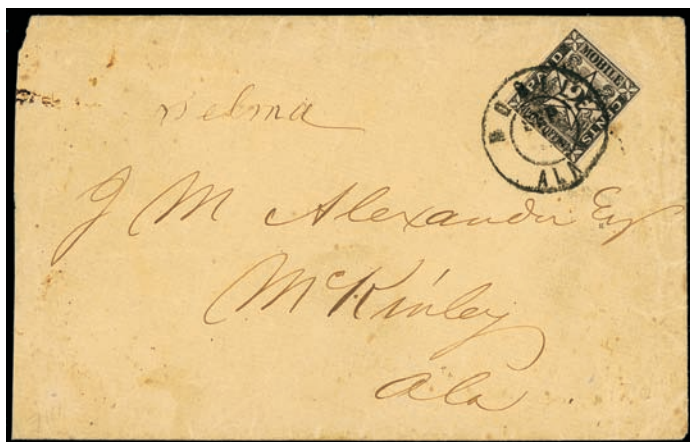 MOBILE
MOBILE
ALA
Selma
J M Alexander Esq
McKinley
Ala